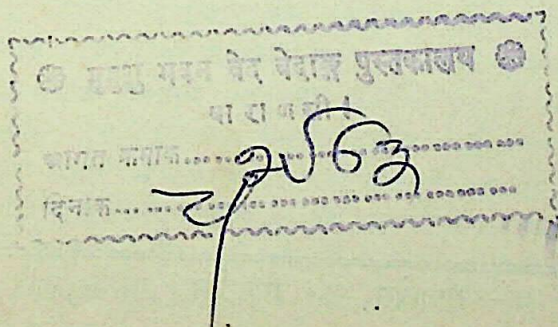 मुमुक्षु भवन वेद वेदाङ्ग पुस्तकालय
वाराणसी ।
आगत क्रमांक....................
दिनांक....................